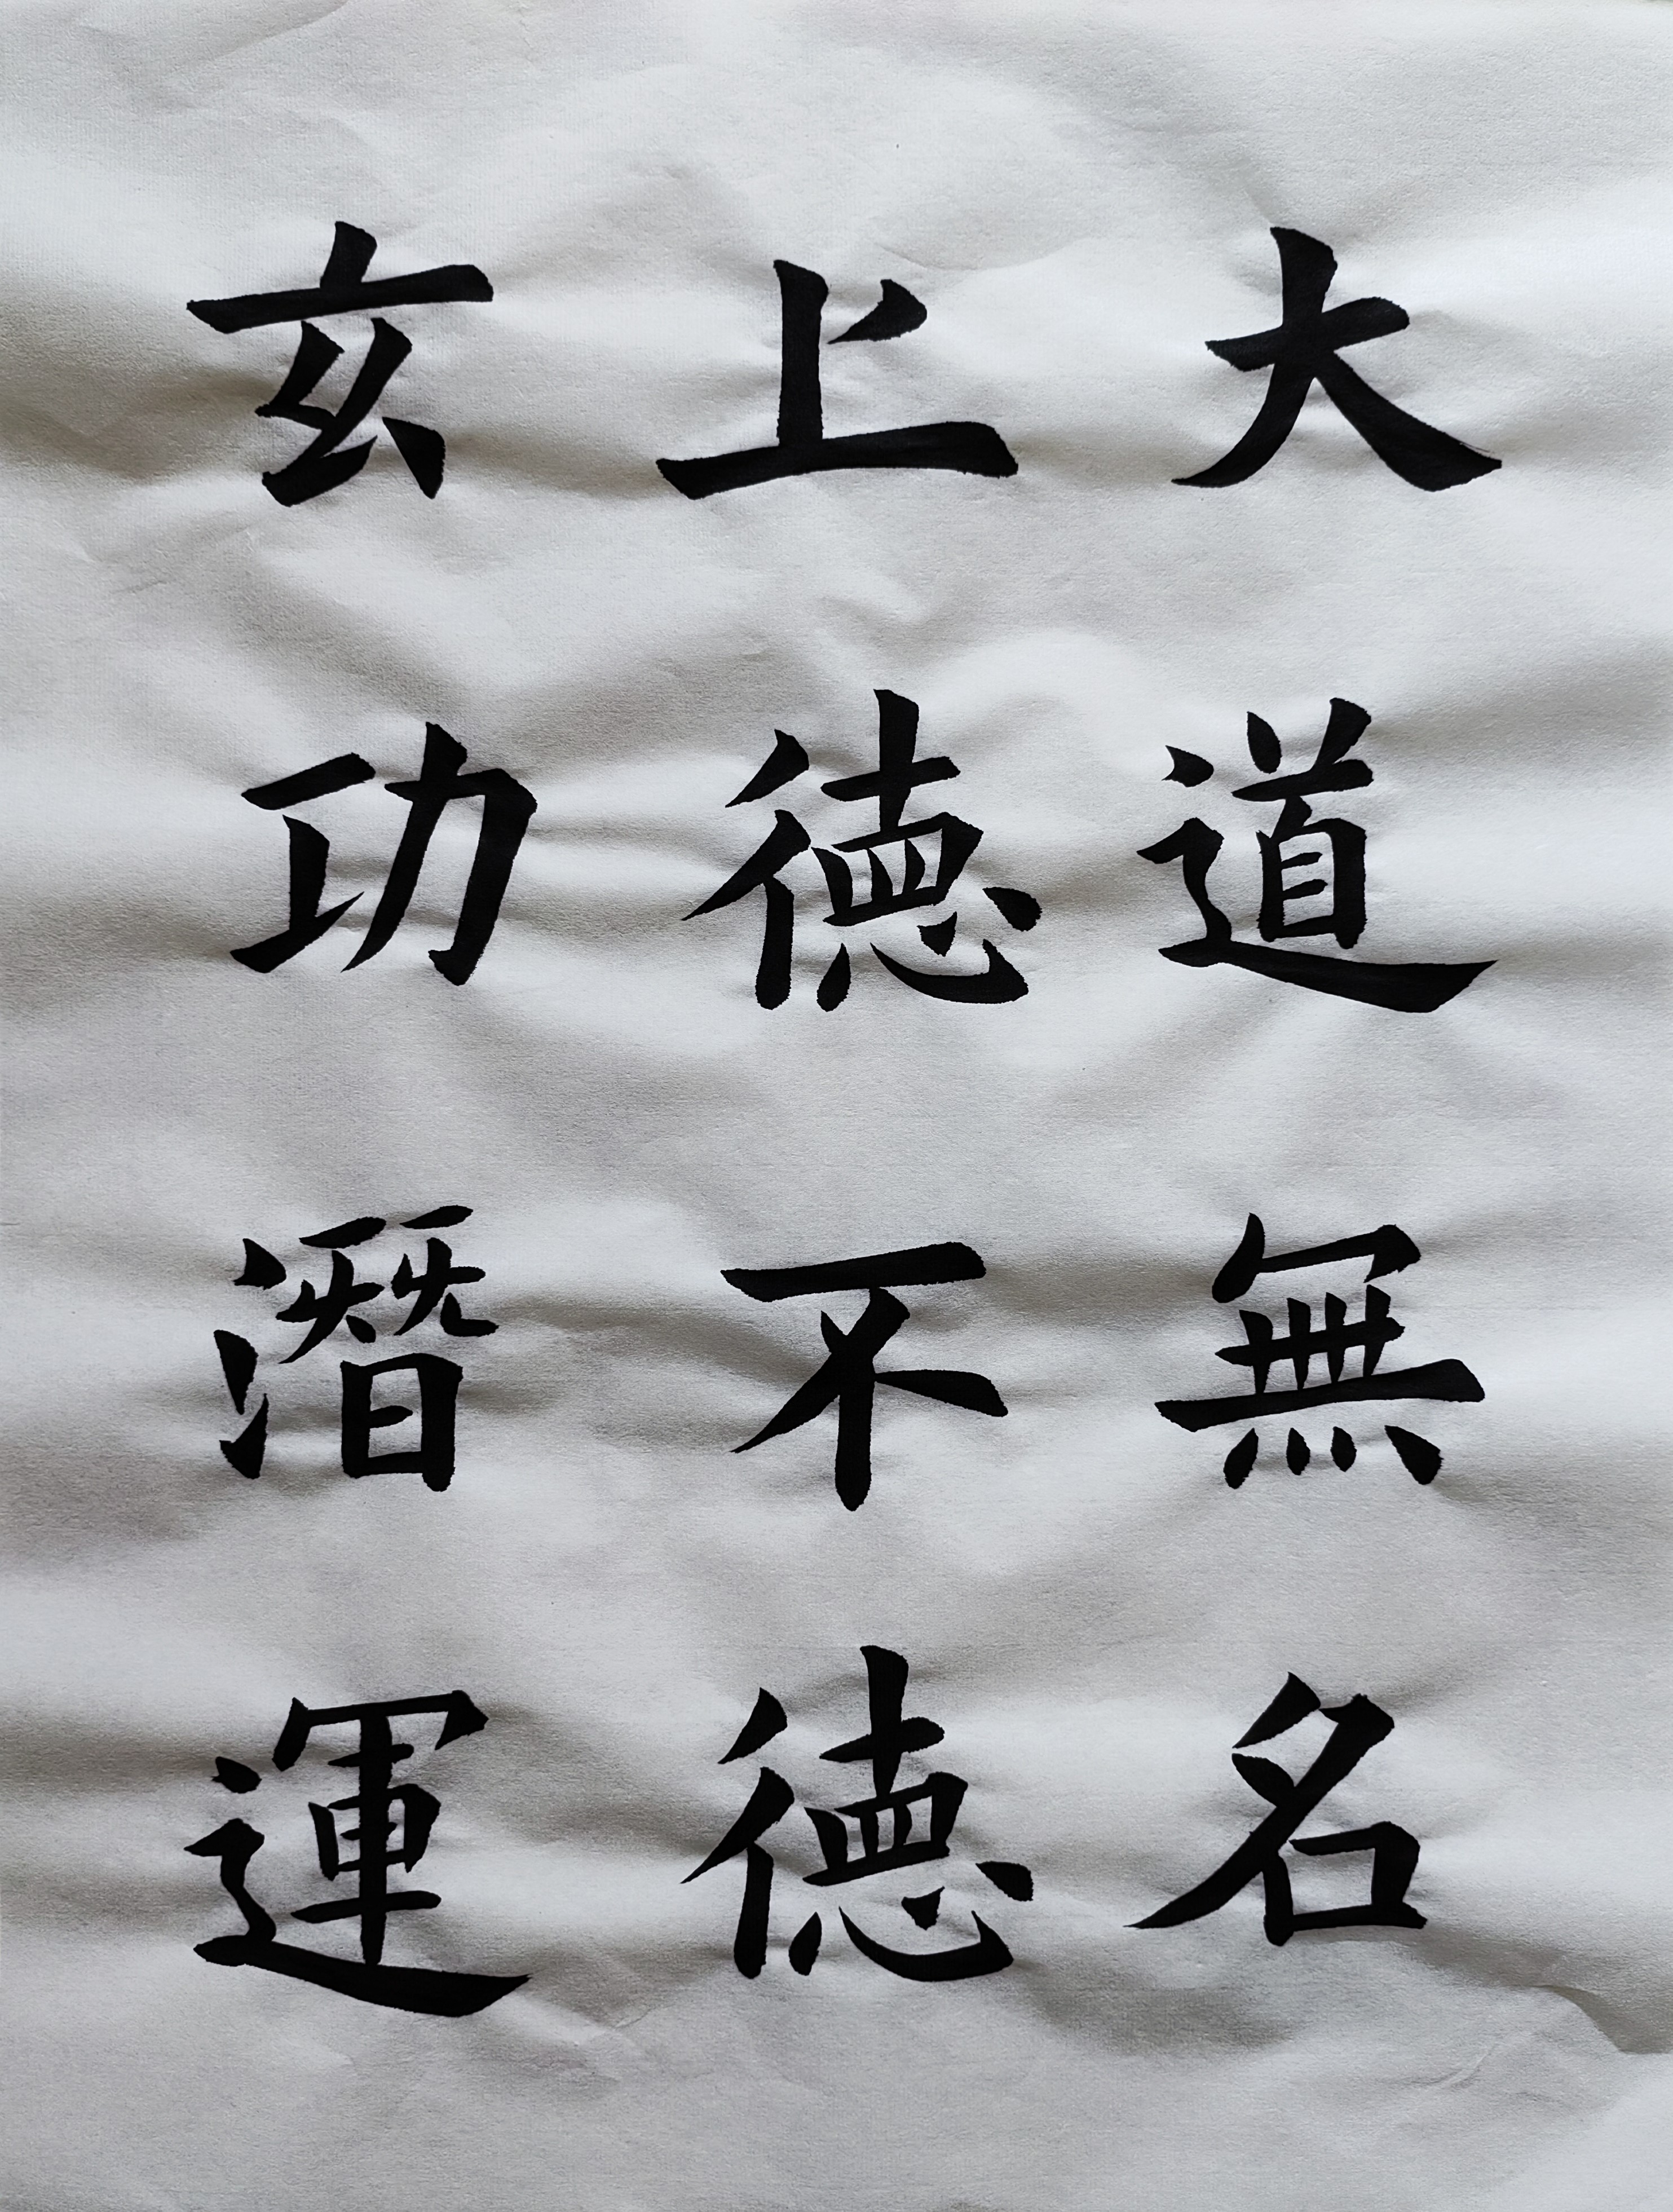 大道無名
上德不德
玄功潛運